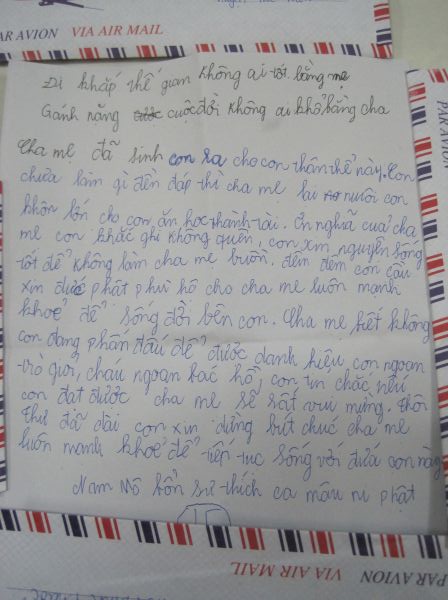 PAR AVION VIA AIR MAIL
Đi khắp thế gian không ai tốt bằng mẹ
Gánh nặng cuộc đời không ai khổ bằng cha
Cha mẹ đã sinh con ra cho con thân thể này. Con
chưa làm gì đền đáp thì cha mẹ lại nuôi con
khôn lớn cho con ăn học thành tài. Ơn nghĩa của cha
mẹ con khắc ghi không quên, con xin nguyện sống
tốt để không làm cha mẹ buồn. đêm đêm con cầu
xin đức phật phù hộ cho cha mẹ luôn mạnh
khoẻ để sống đời bên con. Cha mẹ biết không
con đang phấn đấu để được danh hiệu con ngoan
trò giỏi, cháu ngoan bác hồ, con tin chắc nếu
con đạt được cha mẹ sẽ rất vui mừng. Thôi
thư đã dài con xin dừng bút chúc cha mẹ
luôn mạnh khoẻ để tiếp tục sống với đứa con này
Nam mô bổn sư thích ca mâu ni phật
PAR AVION
PAR AVION
VIA AIR MAIL